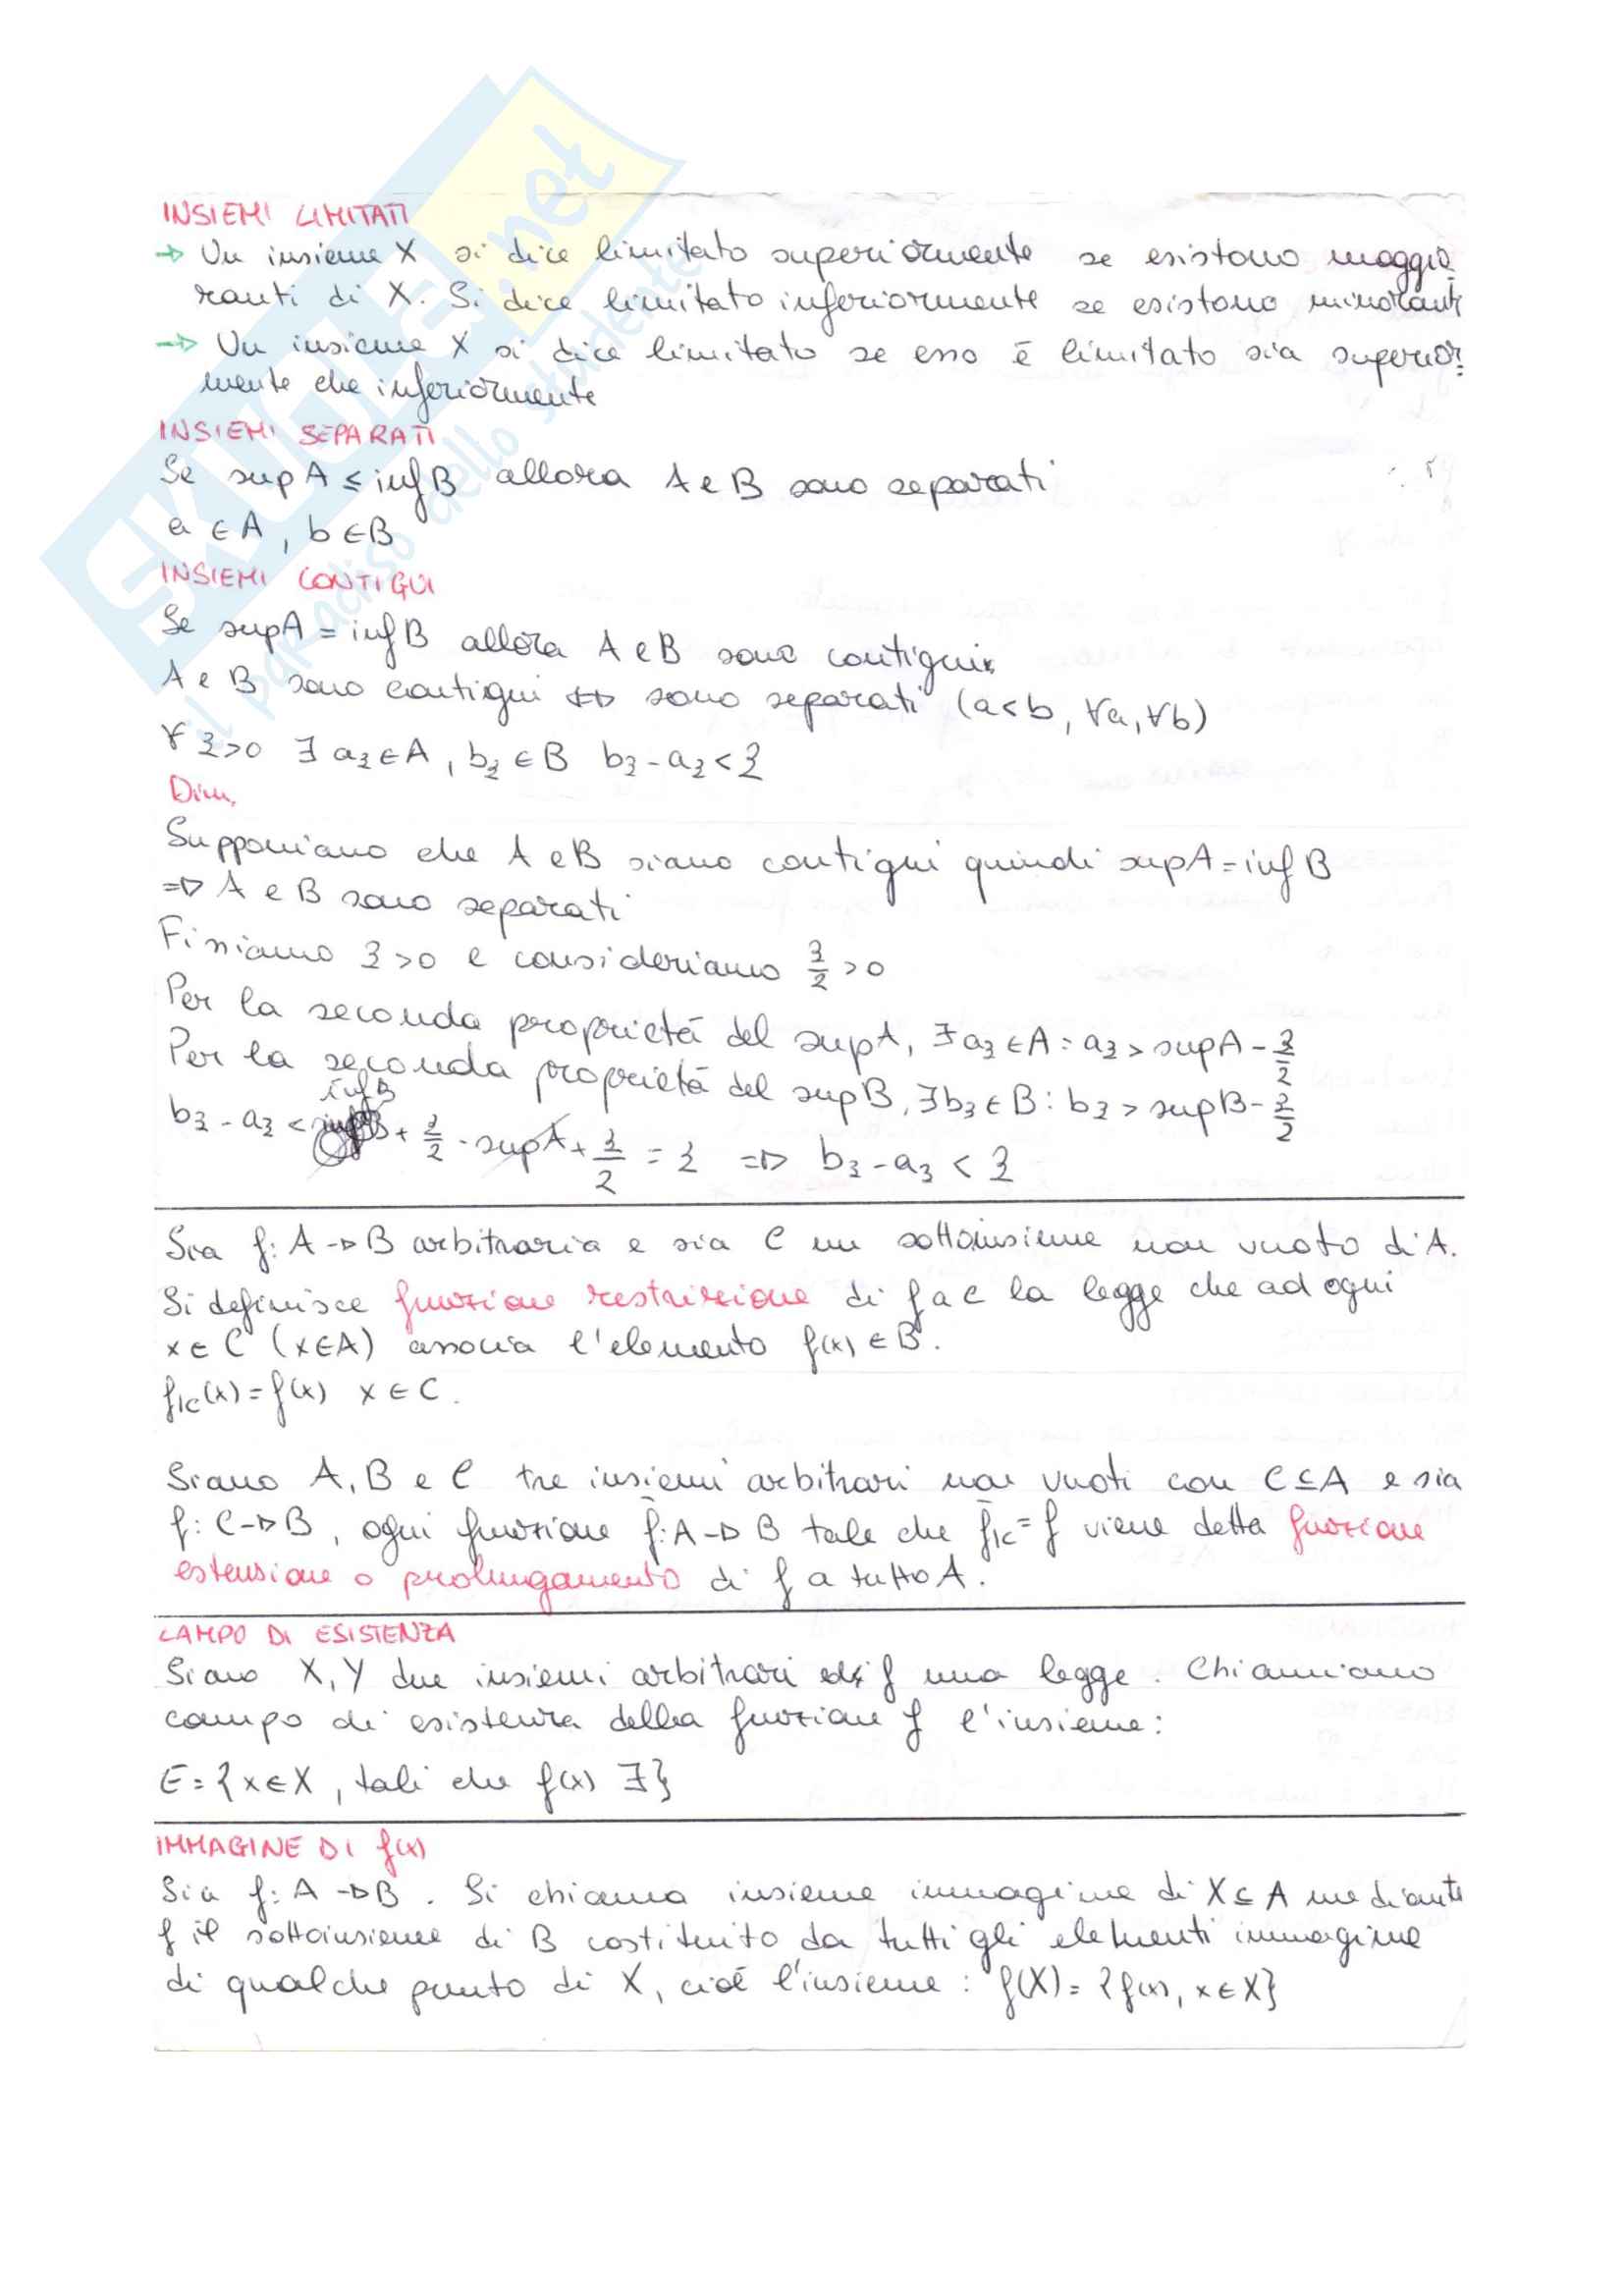 INSIEMI LIMITATI
→ Un insieme X si dice limitato superiormente se esistono maggio-
ranti di X. Si dice limitato inferiormente se esistono minoranti
→ Un insieme X si dice limitato se esso è limitato sia superior-
mente che inferiormente
INSIEMI SEPARATI
Se sup A ≤ inf B allora A e B sono separati
a ∈ A, b ∈ B
INSIEMI CONTIGUI
Se sup A = inf B allora A e B sono contigui
A e B sono contigui ⇔ sono separati (a<b, ∀a, ∀b)
∀ ε>0 ∃ aε ∈ A, bε ∈ B bε - aε < ε
Dim.
Supponiamo che A e B siano contigui quindi sup A = inf B
⇒ A e B sono separati
Fissiamo ε>0 e consideriamo ε/2 >0
Per la seconda proprietà del sup A, ∃ aε ∈ A : aε > sup A - ε/2
Per la seconda proprietà del sup B, ∃ bε ∈ B : bε > sup B - ε/2
bε - aε < inf B + ε/2 - sup A + ε/2 = ε ⇒ bε - aε < ε
Sia f: A → B arbitraria e sia C un sottoinsieme non vuoto di A.
Si definisce funzione restrizione di f a C la legge che ad ogni
x ∈ C (x ∈ A) associa l'elemento f(x) ∈ B.
f|C(x) = f(x) x ∈ C.
Siano A, B e C tre insiemi arbitrari non vuoti con C ⊆ A e sia
f: C → B, ogni funzione f̄: A → B tale che f̄|C = f viene detta funzione
estensione o prolungamento di f a tutto A.
CAMPO DI ESISTENZA
Siano X, Y due insiemi arbitrari ed f una legge. Chiamiamo
campo di esistenza della funzione f l'insieme:
E = {x ∈ X, tali che f(x) ∃}
IMMAGINE DI f(x)
Sia f: A → B. Si chiama insieme immagine di X ⊆ A mediante
f il sottoinsieme di B costituito da tutti gli elementi immagine
di qualche punto di X, cioè l'insieme: f(X) = {f(x), x ∈ X}
SKUOLA.net
il paradiso dello studente